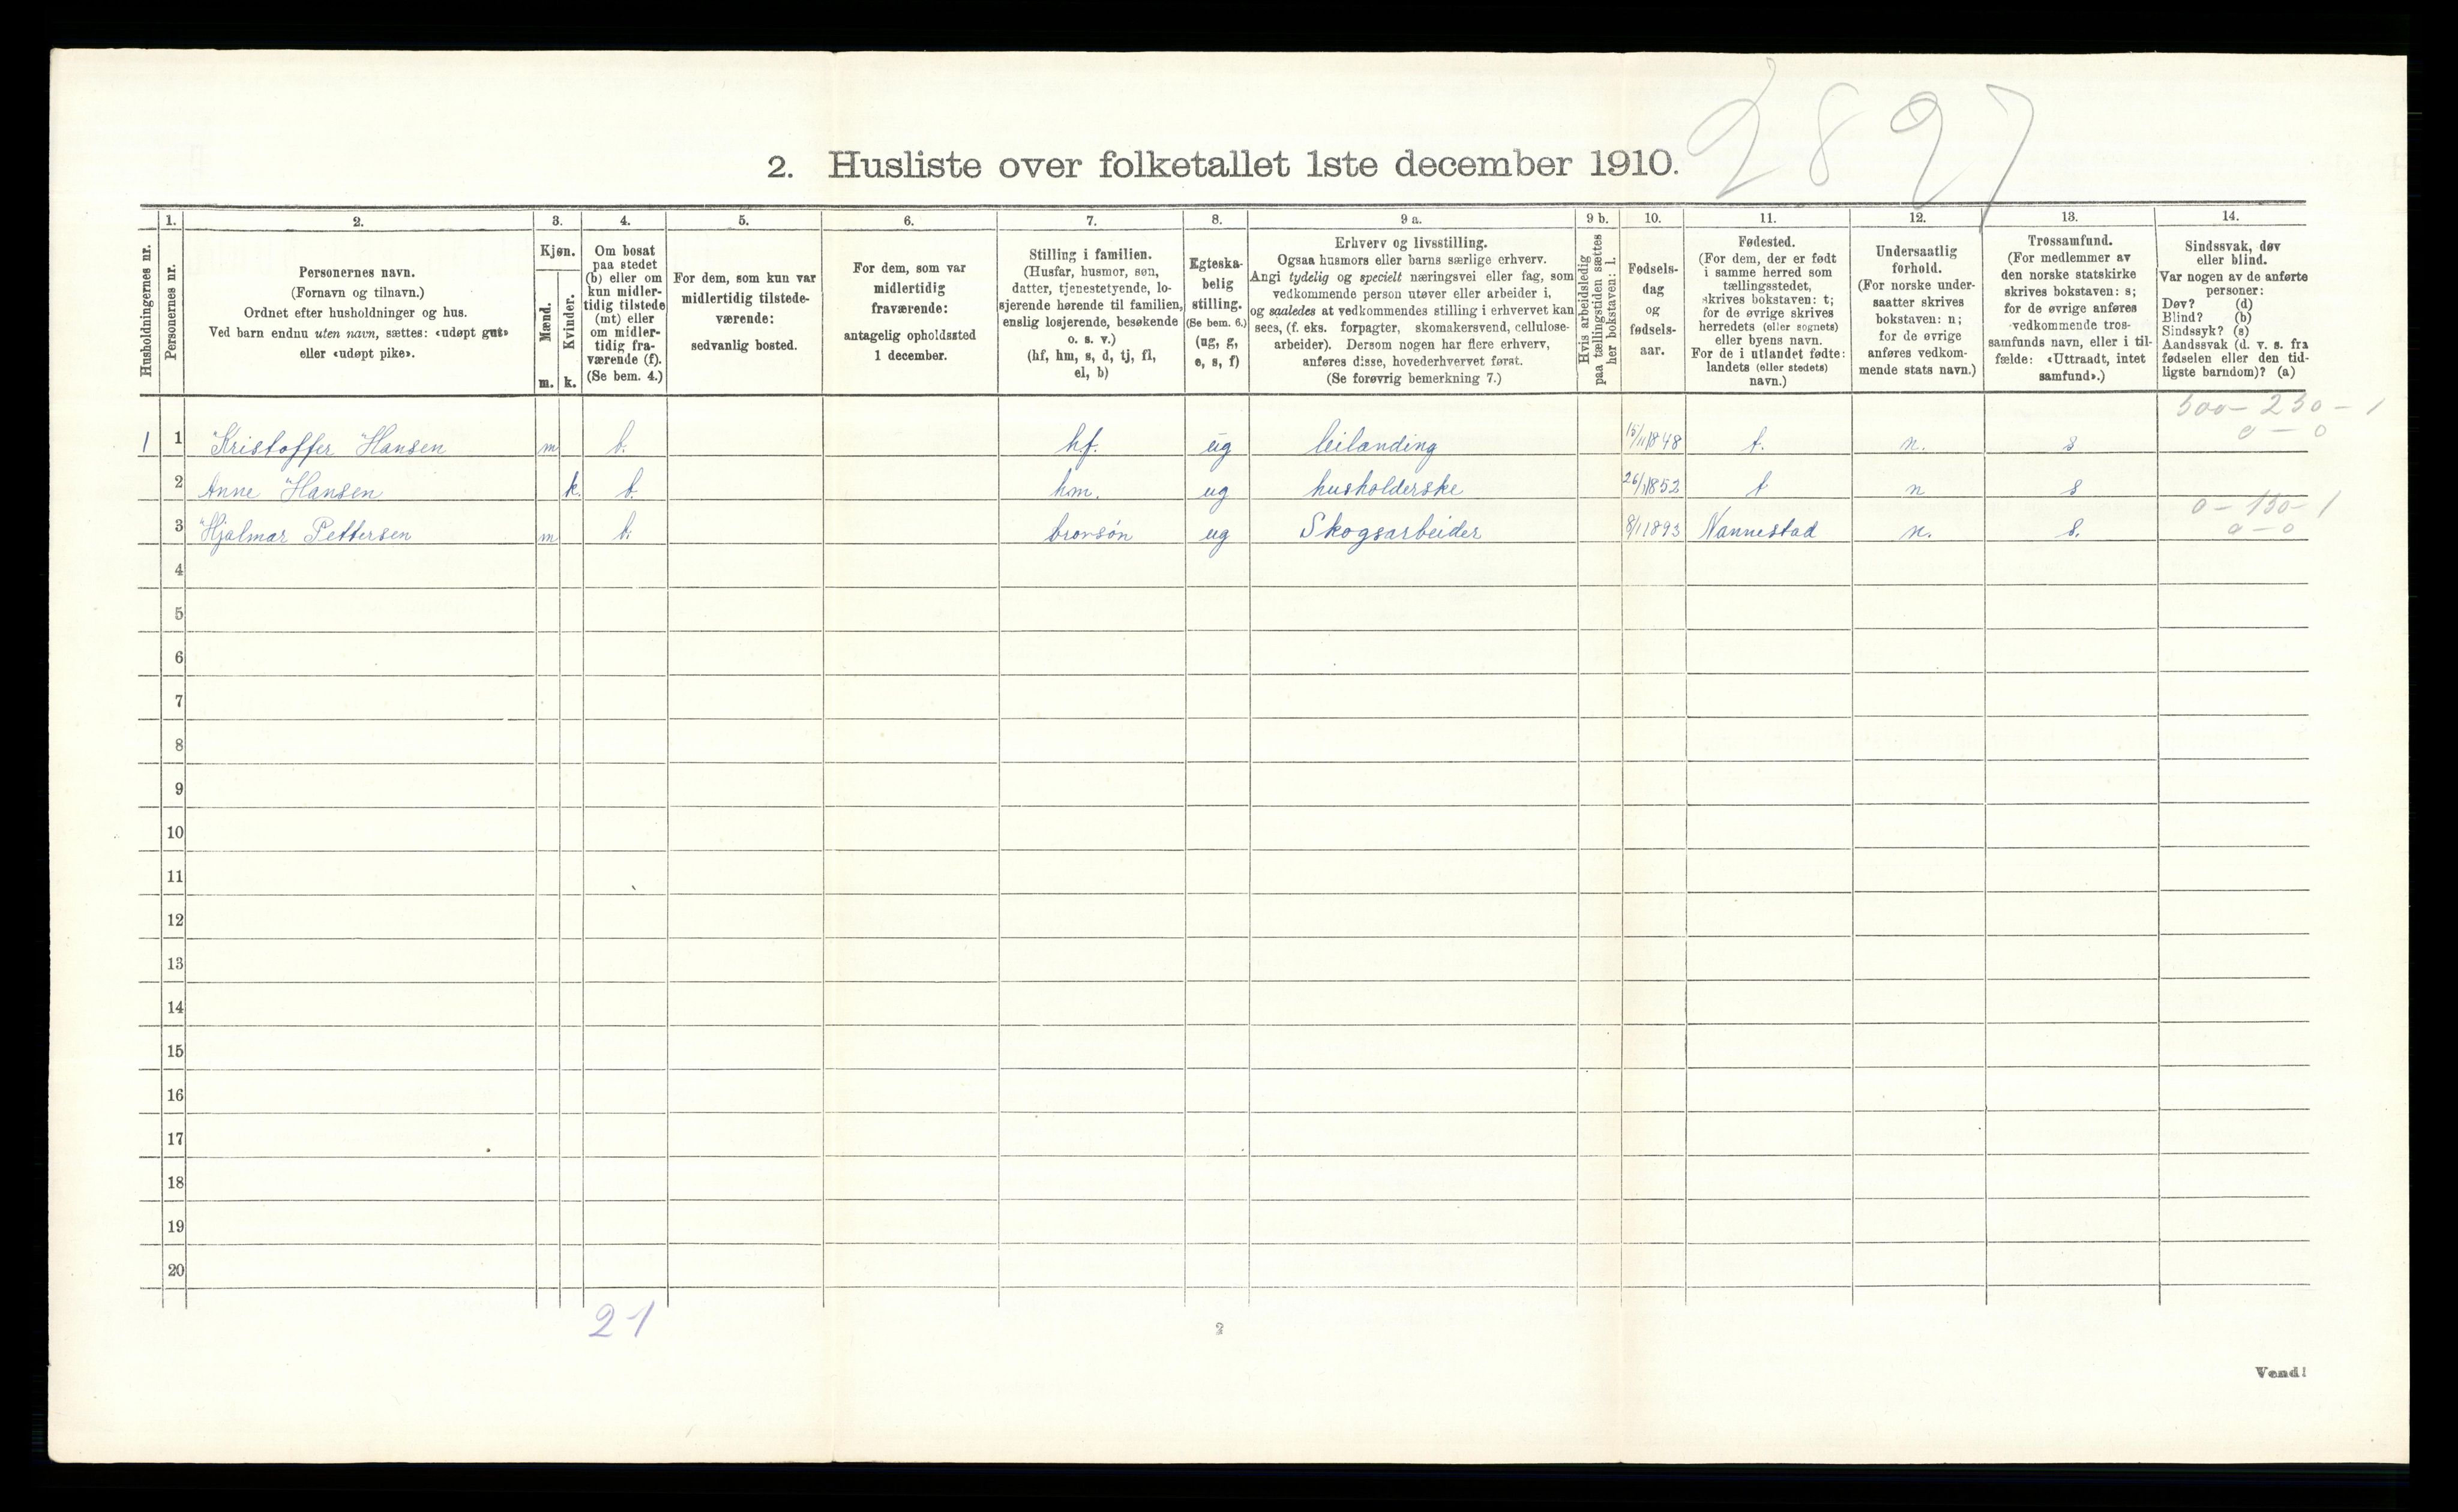 2897
2. Husliste over folketallet 1ste december 1910.
Husholdningernes nr.
1.
Personernes nr.
2.
Personernes navn.
(Fornavn og tilnavn.)
Ordnet efter husholdninger og hus.
Ved barn endnu uten navn, sættes: «udøpt gut»
eller «udøpt pike».
3.
Kjøn.
Mænd.
Kvinder.
m. k.
4.
Om bosat
paa stedet
(b) eller om
kun midler-
tidig tilstede
(mt) eller
om midler-
tidig fra-
værende (f).
(Se bem. 4.)
5.
For dem, som kun var
midlertidig tilstede-
værende:
sedvanlig bosted.
6.
For dem, som var
midlertidig
fraværende:
antagelig opholdssted
1 december.
7.
Stilling i familien.
(Husfar, husmor, søn,
datter, tjenestetyende, lo-
sjerende hørende til familien,
enslig losjerende, besøkende
o. s. v.)
(hf, hm, s, d, tj, fl,
el, b)
8.
Egteska-
belig
stilling.
(Se bem. 6.)
(ug, g,
e, s, f)
9 a.
Erhverv og livsstilling.
Ogsaa husmors eller barns særlige erhverv.
Angi tydelig og specielt næringsvei eller fag, som
vedkommende person utøver eller arbeider i,
og saaledes at vedkommendes stilling i erhvervet kan
sees, (f. eks. forpagter, skomakersvend, cellulose-
arbeider). Dersom nogen har flere erhverv,
anføres disse, hovederhvervet først.
(Se forøvrig bemerkning 7.)
9 b.
Hvis arbeidsledig
paa tællingstiden sættes
her bokstaven: l.
10.
Fødsels-
dag
og
fødsels-
aar.
11.
Fødested.
(For dem, der er født
i samme herred som
tællingsstedet,
skrives bokstaven: t;
for de øvrige skrives
herredets (eller sognets)
eller byens navn.
For de i utlandet fødte:
landets (eller stedets)
navn.)
12.
Undersaatlig
forhold.
(For norske under-
saatter skrives
bokstaven: n;
for de øvrige
anføres vedkom-
mende stats navn.)
13.
Trossamfund.
(For medlemmer av
den norske statskirke
skrives bokstaven: s;
for de øvrige anføres
vedkommende tros-
samfunds navn, eller i til-
fælde: «Uttraadt, intet
samfund».)
14.
Sindssvak, døv
eller blind.
Var nogen av de anførte
personer:
Døv? (d)
Blind? (b)
Sindssyk? (s)
Aandssvak (d. v. s. fra
fødselen eller den tid-
ligste barndom)? (a)
500 - 230 - 1
0 - 0
1 1 Kristoffer Hansen m b. hf. ug leilanding 15/11 1848 t. n. s
2 Anne Hansen k. b. hm. ug husholderske 26/1 1852 t n s
0 - 150 - 1
0 - 0
3 Hjalmar Pettersen m b. brorsön ug Skogsarbeider 8/1 1893 Nannestad n. s.
4
5
6
7
8
9
10
11
12
13
14
15
16
17
18
19
20
21
2
Vend!